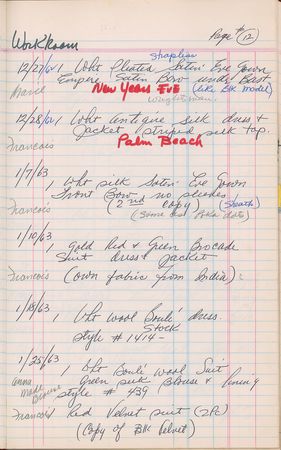 Work Room Page # 12
Strapless
12/27/62 1 Wht Pleated Satin Eve Gown
Empire Satin Bow under Bust
Marie New Years Eve (like Blk model)
Wrightsman
12/28/62 1 Wht antique silk dress +
Jacket striped silk top.
Francois Palm Beach
1/7/63
1 Wht silk Satin Eve Gown
Front Bow no sleeves
Francois (2nd copy) (Sheath)
(Same as Polka dots)
1/10/63
1 Gold Red + Green Brocade
Suit dress + Jacket
Francois (Own fabric from India)
1/18/63
1 Wht wool Bouclé dress.
Stock
style # 1414 -
1/25/63
1 Wht Bouclé Wool Suit
Anna Green silk Blouse + lining
Made Blouse style # 439
Francois 1 Red Velvet suit (2Pc)
(Copy of Blk Velvet)